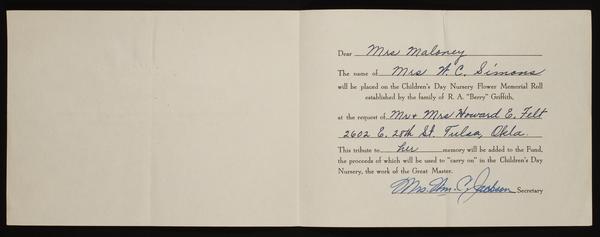 Dear Mrs Maloney
The name of Mrs W. C. Simons
will be placed on the Children's Day Nursery Flower Memorial Roll
established by the family of R. A. "Berry" Griffith,
at the request of Mr & Mrs Howard E. Felt
2602 E. 28th St. Tulsa, Okla.
This tribute to her memory will be added to the Fund,
the proceeds of which will be used to "carry on" in the Children's Day
Nursery, the work of the Great Master.
Mrs. Wm. C. Jackson Secretary